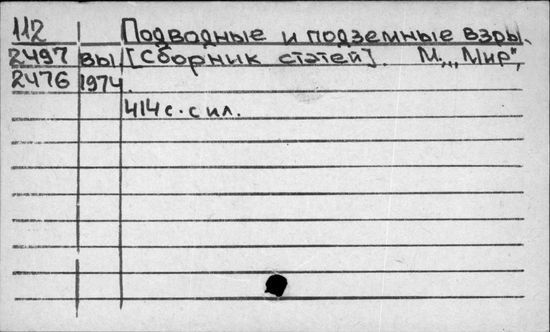 112 Подводные и подземные взры-
2497 вы. [Сборник статей]. М., „Мир",
2476 1974.
414 с. с ил.